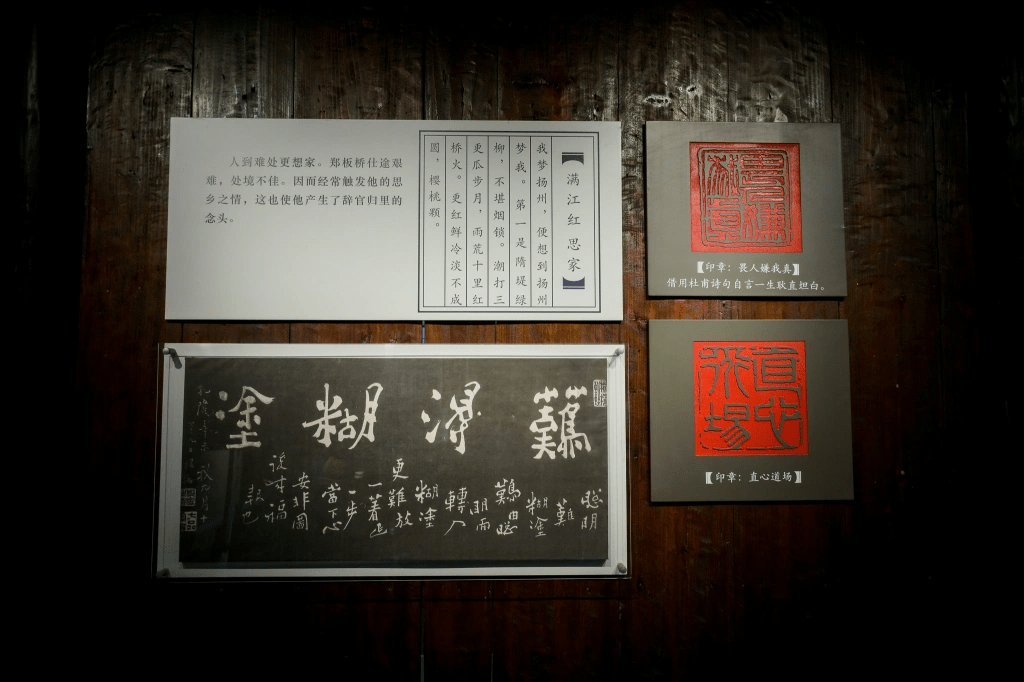 人到难处更想家。郑板桥仕途艰
难，处境不佳。因而经常触发他的思
乡之情，这也使他产生了辞官归里的
念头。
【满江红 思家】
我梦扬州，便想到扬州
梦我。第一是隋堤绿
柳，不堪烟锁。潮打三
更瓜步月，雨荒十里红
桥火。更红鲜冷淡不成
圆，樱桃颗。
【印章：畏人嫌我真】
借用杜甫詩句自言一生耿直坦白。
難得糊塗
聰明
難
糊塗
難由聰
明而
轉入
糊塗
更難放
一著退
一步
當下心
安非圖
後来福
報也
直心道場
【印章：直心道场】